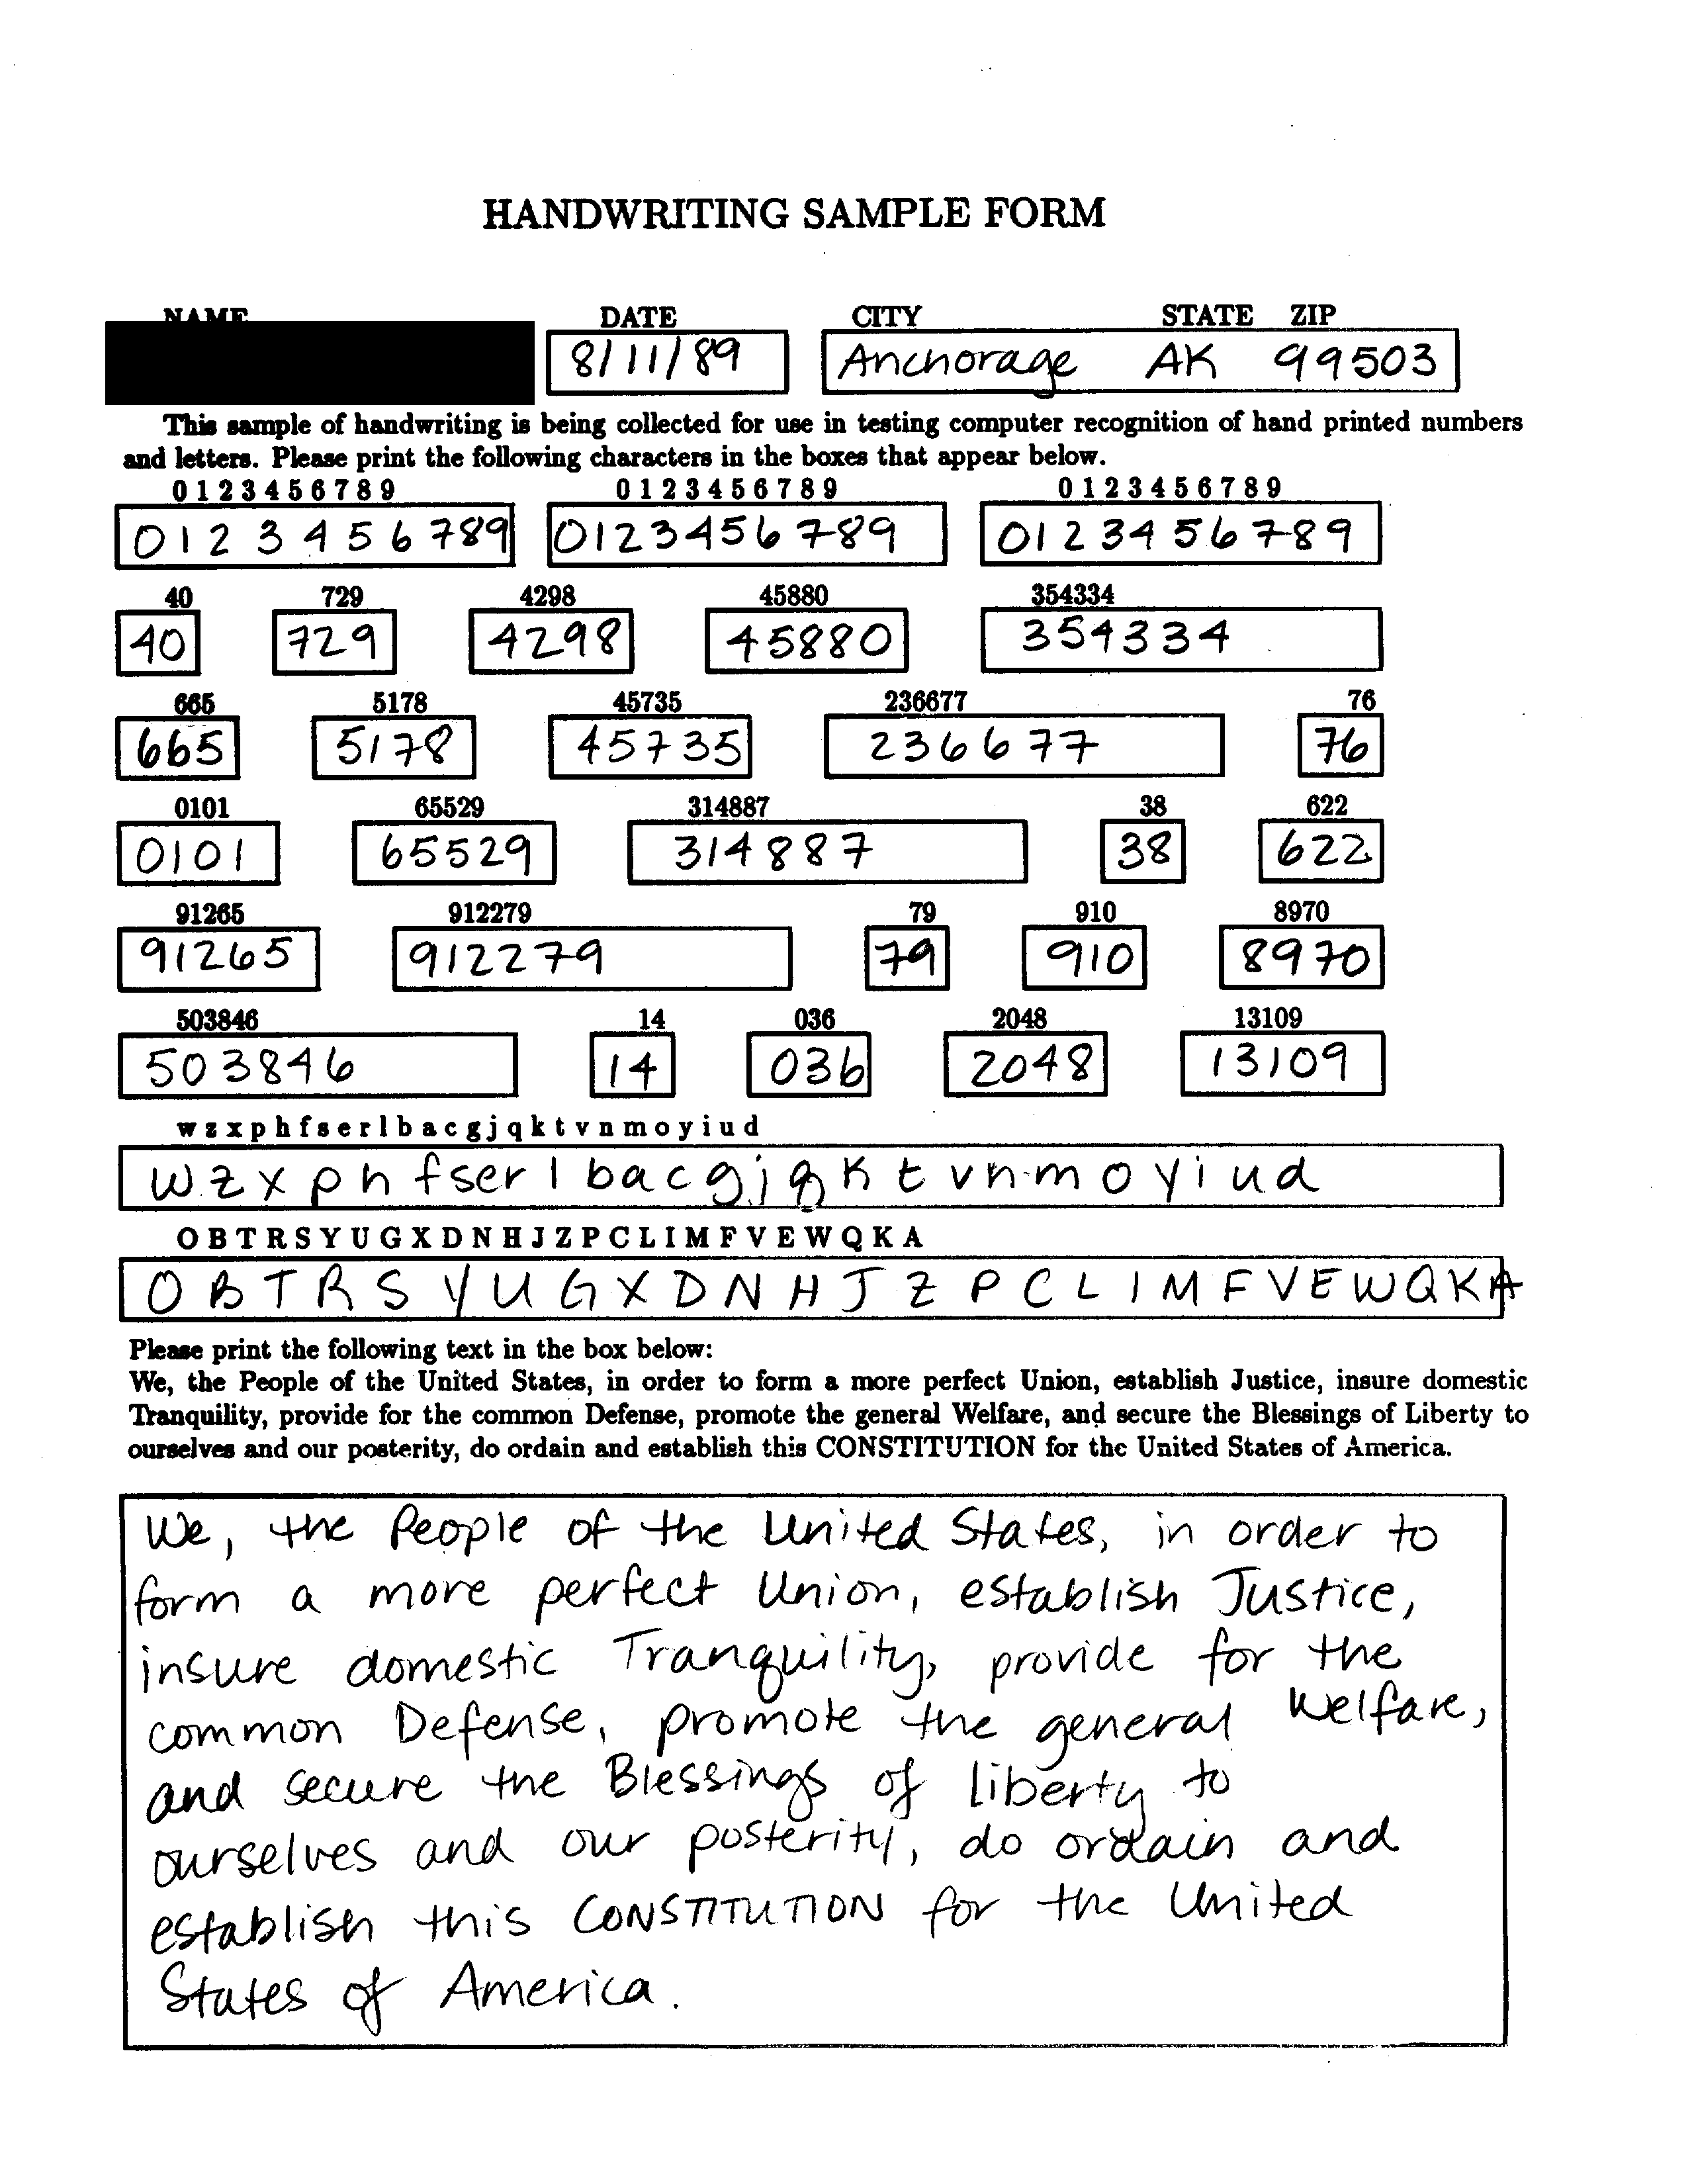 HANDWRITING SAMPLE FORM
NAME DATE CITY STATE ZIP
8/11/89 Anchorage AK 99503
This sample of handwriting is being collected for use in testing computer recognition of hand printed numbers
and letters. Please print the following characters in the boxes that appear below.
0 1 2 3 4 5 6 7 8 9 0 1 2 3 4 5 6 7 8 9 0 1 2 3 4 5 6 7 8 9
0 1 2 3 4 5 6 7 8 9 0 1 2 3 4 5 6 7 8 9 0 1 2 3 4 5 6 7 8 9
40 729 4298 45880 354334
40 729 4298 45880 354334
665 5178 45735 236677 76
665 5178 45735 236677 76
0101 65529 314887 38 622
0101 65529 314887 38 622
91265 912279 79 910 8970
91265 912279 79 910 8970
503846 14 036 2048 13109
503846 14 036 2048 13109
w z x p h f s e r l b a c g j q k t v n m o y i u d
w z x p h f s e r l b a c g j q k t v n m o y i u d
O B T R S Y U G X D N H J Z P C L I M F V E W Q K A
O B T R S Y U G X D N H J Z P C L I M F V E W Q K A
Please print the following text in the box below:
We, the People of the United States, in order to form a more perfect Union, establish Justice, insure domestic
Tranquility, provide for the common Defense, promote the general Welfare, and secure the Blessings of Liberty to
ourselves and our posterity, do ordain and establish this CONSTITUTION for the United States of America.
We, the People of the United States, in order to
form a more perfect Union, establish Justice,
insure domestic Tranquility, provide for the
common Defense, promote the general Welfare,
and secure the Blessings of liberty to
ourselves and our posterity, do ordain and
establish this CONSTITUTION for the United
States of America.